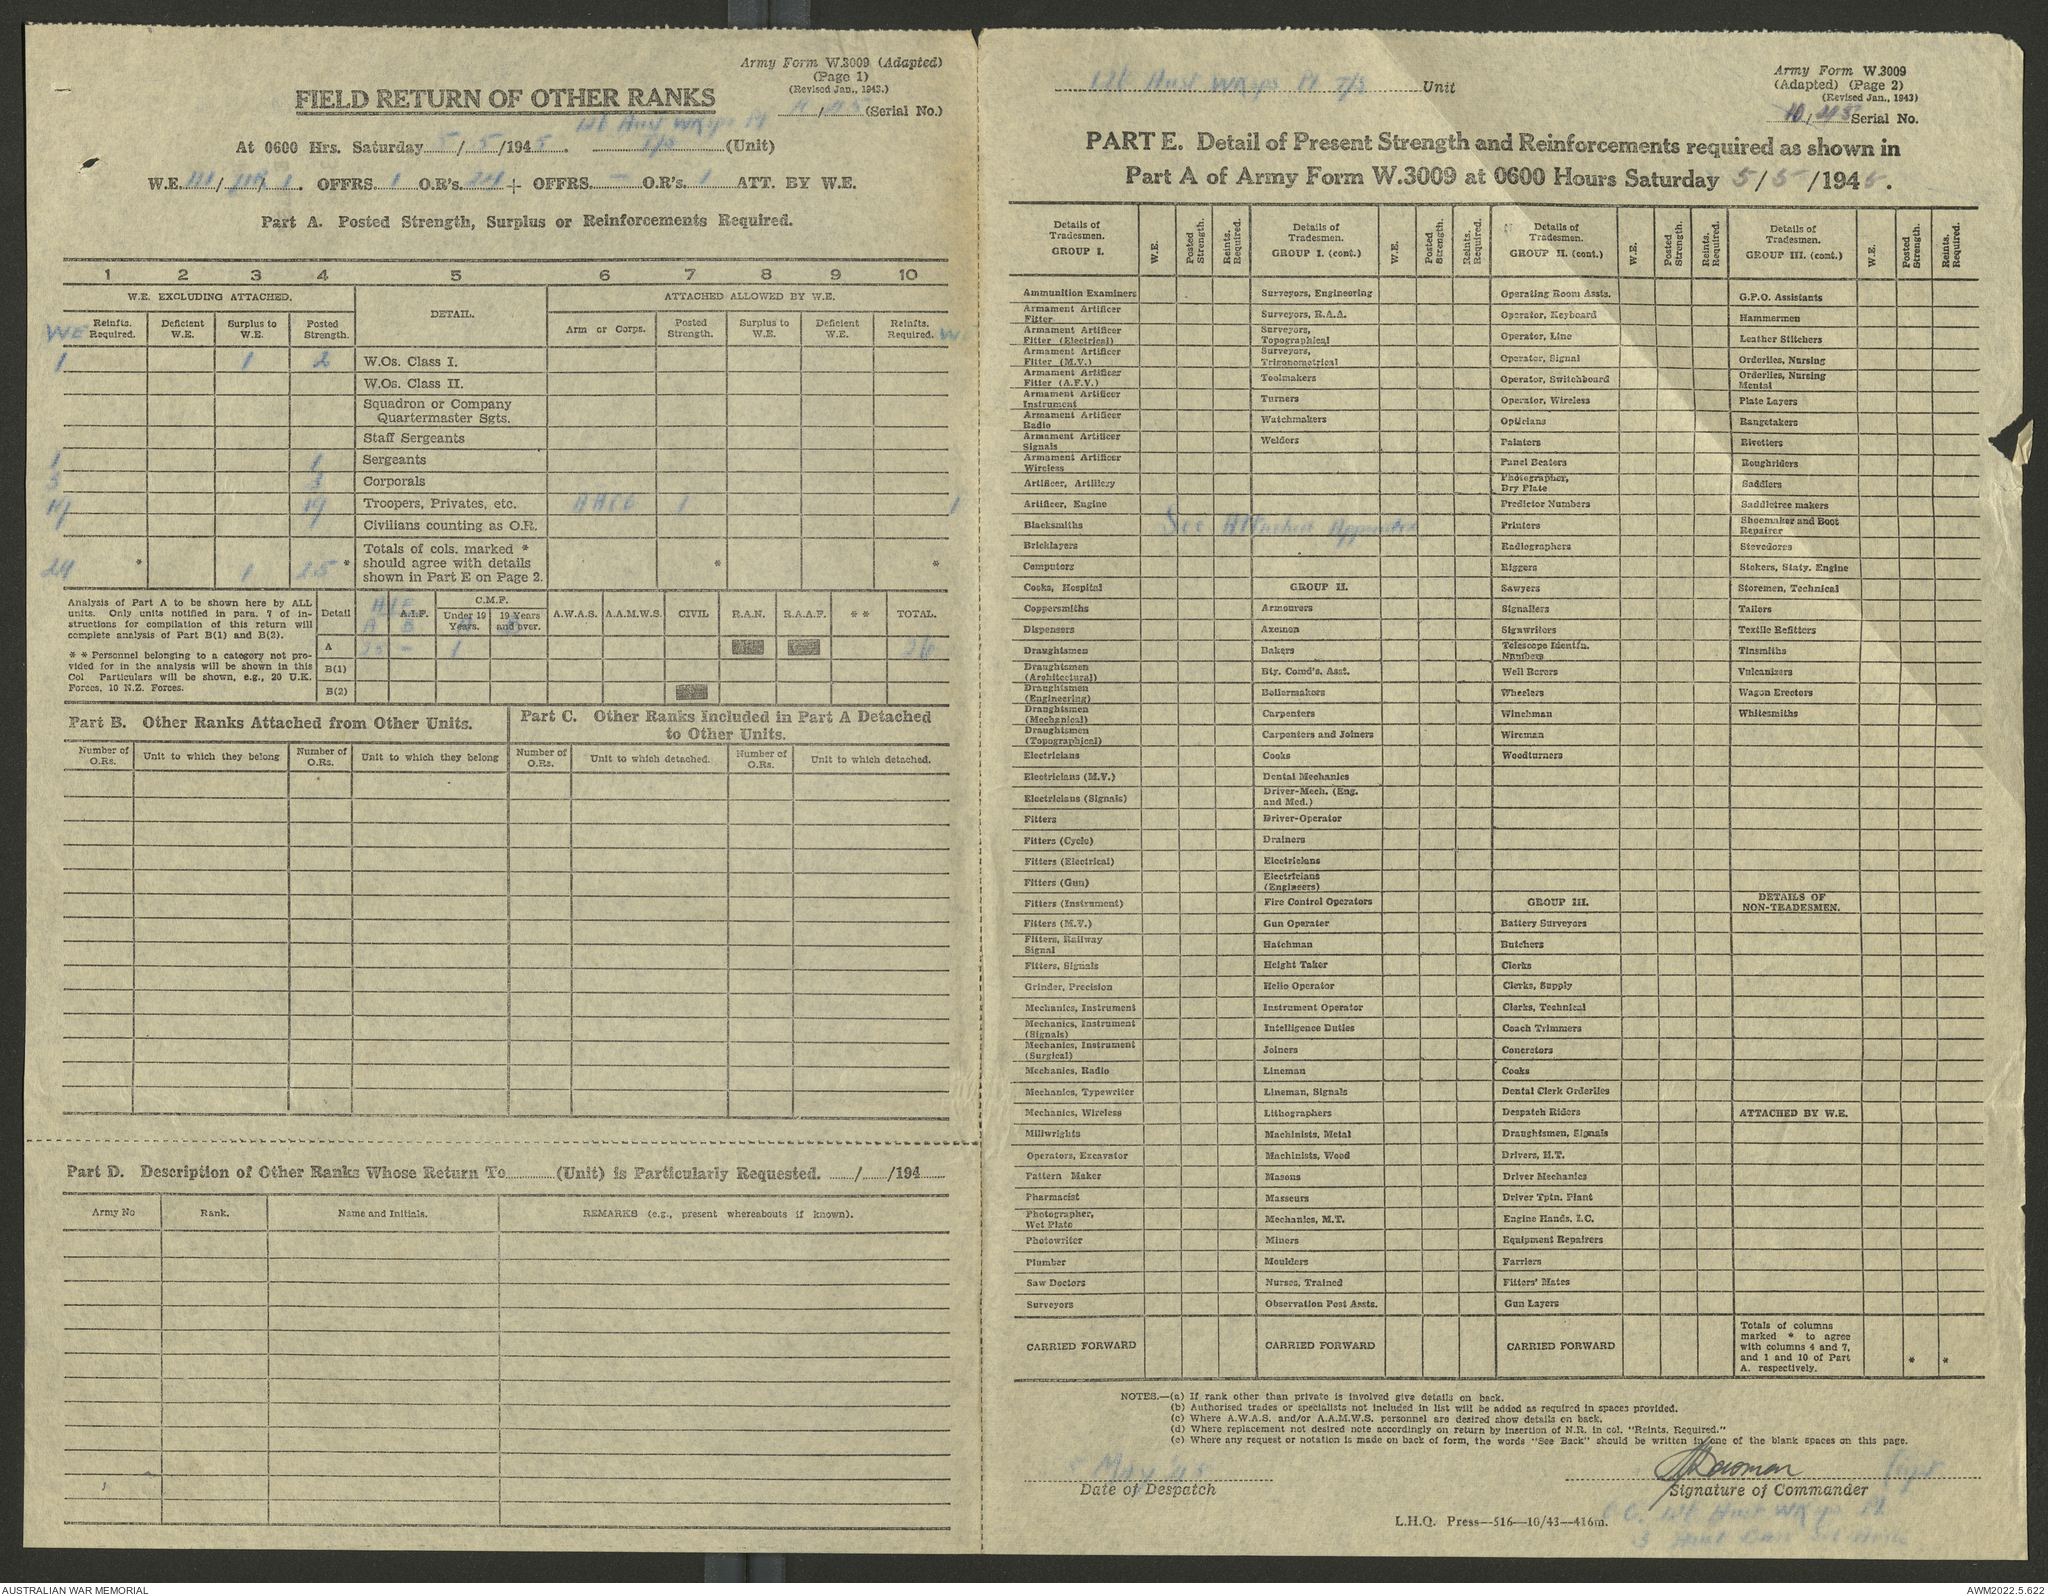 Army Form W.3009 (Adapted)
(Page 1)
(Revised Jan., 1943.)
FIELD RETURN OF OTHER RANKS
/45 (Serial No.)
At 0600 Hrs. Saturday 5/5/1945. 126 Aust Wksps Pl
(Unit)
W.E. III/ OFFRS. 1 O.R's. 24 + OFFRS. — O.R's. 1 ATT. BY W.E.
Part A. Posted Strength, Surplus or Reinforcements Required.
1 2 3 4 5 6 7 8 9 10
W.E. EXCLUDING ATTACHED. DETAIL. ATTACHED ALLOWED BY W.E.
WE Reinfts. Required. Deficient W.E. Surplus to W.E. Posted Strength. Arm or Corps. Posted Strength. Surplus to W.E. Deficient W.E. Reinfts. Required. WE
1 1 2 W.Os. Class I.
W.Os. Class II.
Squadron or Company Quartermaster Sgts.
Staff Sergeants
1 1 Sergeants
3 3 Corporals
19 19 Troopers, Privates, etc. AACC 1 1
Civilians counting as O.R.
24 * 1 25 * Totals of cols. marked * should agree with details shown in Part E on Page 2. * *
Analysis of Part A to be shown here by ALL units. Only units notified in para. 7 of instructions for compilation of this return will complete analysis of Part B(1) and B(2).
* * Personnel belonging to a category not provided for in the analysis will be shown in this Col Particulars will be shown, e.g., 20 U.K. Forces, 10 N.Z. Forces.
Detail A.I.F. C.M.F. Under 19 Years. 19 Years and over. A.W.A.S. A.A.M.W.S. CIVIL R.A.N. R.A.A.F. * * TOTAL.
A 25 — 1 26
B(1)
B(2)
Part B. Other Ranks Attached from Other Units.
Number of O.Rs. Unit to which they belong Number of O.Rs. Unit to which they belong
Part C. Other Ranks Included in Part A Detached to Other Units.
Number of O.Rs. Unit to which detached. Number of O.Rs. Unit to which detached.
Part D. Description of Other Ranks Whose Return To (Unit) is Particularly Requested. / /194
Army No Rank. Name and Initials. REMARKS (e.g., present whereabouts if known).
126 Aust Wksps Pl Unit
Army Form W.3009
(Adapted) (Page 2)
(Revised Jan., 1943)
10/45 Serial No.
PART E. Detail of Present Strength and Reinforcements required as shown in
Part A of Army Form W.3009 at 0600 Hours Saturday 5/5/1945.
Details of Tradesmen. GROUP I. W.E. Posted Strength. Reints. Required.
Ammunition Examiners
Armament Artificer Fitter
Armament Artificer Fitter (Electrical)
Armament Artificer Fitter (M.V.)
Armament Artificer Fitter (A.F.V.)
Armament Artificer Instrument
Armament Artificer Radio
Armament Artificer Signals
Armament Artificer Wireless
Artificer, Artillery
Artificer, Engine
Blacksmiths
See Attached Appendix
Bricklayers
Computors
Cooks, Hospital
Coppersmiths
Dispensers
Draughtsmen
Draughtsmen (Architectural)
Draughtsmen (Engineering)
Draughtsmen (Mechanical)
Draughtsmen (Topographical)
Electricians
Electricians (M.V.)
Electricians (Signals)
Fitters
Fitters (Cycle)
Fitters (Electrical)
Fitters (Gun)
Fitters (Instrument)
Fitters (M.V.)
Fitters, Railway Signal
Fitters, Signals
Grinder, Precision
Mechanics, Instrument
Mechanics, Instrument (Signals)
Mechanics, Instrument (Surgical)
Mechanics, Radio
Mechanics, Typewriter
Mechanics, Wireless
Millwrights
Operators, Excavator
Pattern Maker
Pharmacist
Photographer, Wet Plate
Photowriter
Plumber
Saw Doctors
Surveyors
CARRIED FORWARD
Details of Tradesmen. GROUP I. (cont.) W.E. Posted Strength. Reints. Required.
Surveyors, Engineering
Surveyors, R.A.A.
Surveyors, Topographical
Surveyors, Trigonometrical
Toolmakers
Turners
Watchmakers
Welders
GROUP II.
Armourers
Axemen
Bakers
Bty. Comd's. Asst.
Boilermakers
Carpenters
Carpenters and Joiners
Cooks
Dental Mechanics
Driver-Mech. (Eng. and Med.)
Driver-Operator
Drainers
Electricians
Electricians (Engineers)
Fire Control Operators
Gun Operator
Hatchman
Height Taker
Helio Operator
Instrument Operator
Intelligence Duties
Joiners
Lineman
Lineman, Signals
Lithographers
Machinists, Metal
Machinists, Wood
Masons
Masseurs
Mechanics, M.T.
Miners
Moulders
Nurses, Trained
Observation Post Assts.
CARRIED FORWARD
Details of Tradesmen. GROUP II. (cont.) W.E. Posted Strength. Reints. Required.
Operating Room Assts.
Operator, Keyboard
Operator, Line
Operator, Signal
Operator, Switchboard
Operator, Wireless
Opticians
Painters
Panel Beaters
Photographer, Dry Plate
Predictor Numbers
Printers
Radiographers
Riggers
Sawyers
Signallers
Signwriters
Telescope Identfn. Numbers
Well Borers
Wheelers
Winchman
Wireman
Woodturners
GROUP III.
Battery Surveyors
Butchers
Clerks
Clerks, Supply
Clerks, Technical
Coach Trimmers
Concretors
Cooks
Dental Clerk Orderlies
Despatch Riders
Draughtsmen, Signals
Drivers, M.T.
Driver Mechanics
Driver Tptn. Plant
Engine Hands, I.C.
Equipment Repairers
Farriers
Fitters' Mates
Gun Layers
CARRIED FORWARD
Details of Tradesmen. GROUP III. (cont.) W.E. Posted Strength. Reints. Required.
G.P.O. Assistants
Hammermen
Leather Stitchers
Orderlies, Nursing
Orderlies, Nursing Mental
Plate Layers
Rangetakers
Rivetters
Roughriders
Saddlers
Saddletree makers
Shoemaker and Boot Repairer
Stevedores
Stokers, Staty. Engine
Storemen, Technical
Tailors
Textile Refitters
Tinsmiths
Vulcanizers
Wagon Erectors
Whitesmiths
DETAILS OF NON-TRADESMEN.
ATTACHED BY W.E.
Totals of columns marked * to agree with columns 4 and 7, and 1 and 10 of Part A. respectively. * *
NOTES.—(a) If rank other than private is involved give details on back.
(b) Authorised trades or specialists not included in list will be added as required in spaces provided.
(c) Where A.W.A.S. and/or A.A.M.W.S. personnel are desired show details on back.
(d) Where replacement not desired note accordingly on return by insertion of N.R. in col. "Reints. Required."
(e) Where any request or notation is made on back of form, the words "See Back" should be written in one of the blank spaces on this page.
5 May 45
Date of Despatch
Capt
Signature of Commander
O.C. 126 Aust Wksps Pl
L.H.Q. Press—516—10/43—416m.
AUSTRALIAN WAR MEMORIAL
AWM2022.5.622